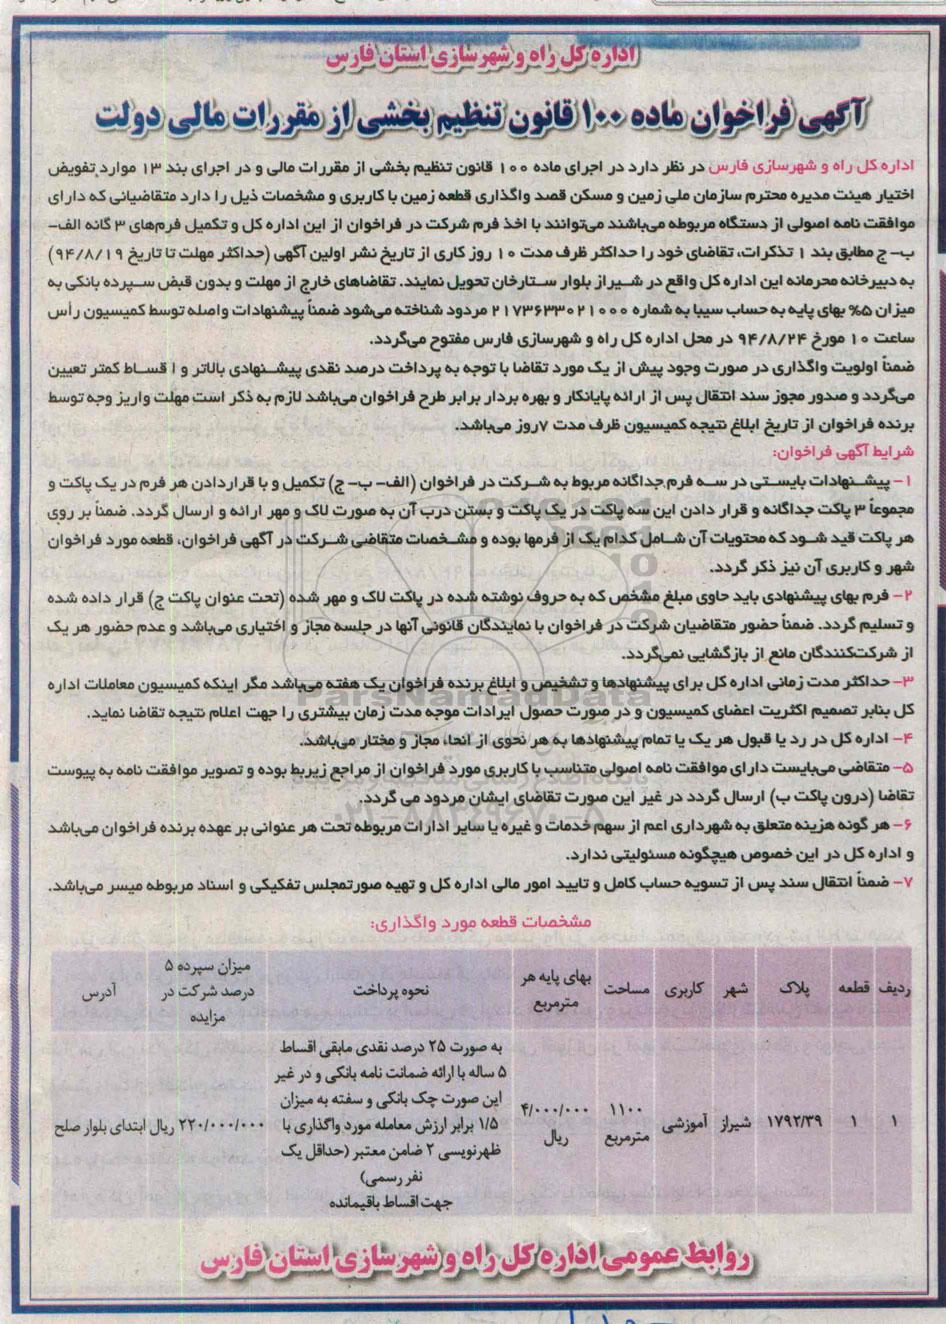 اداره کل راه و شهرسازی استان فارس
آگهی فراخوان ماده ۱۰۰ قانون تنظیم بخشی از مقررات مالی دولت
اداره کل راه و شهرسازی فارس در نظر دارد در اجرای ماده ۱۰۰ قانون تنظیم بخشی از مقررات مالی و در اجرای بند ۱۳ موارد تفویض
اختیار هیئت مدیره محترم سازمان ملی زمین و مسکن قصد واگذاری قطعه زمین با کاربری و مشخصات ذیل را دارد متقاضیانی که دارای
موافقت نامه اصولی از دستگاه مربوطه می‌باشند می‌توانند با اخذ فرم شرکت در فراخوان از این اداره کل و تکمیل فرم‌های ۳ گانه الف-
ب- ج مطابق بند ۱ تذکرات، تقاضای خود را حداکثر ظرف مدت ۱۰ روز کاری از تاریخ نشر اولین آگهی (حداکثر مهلت تا تاریخ ۹۴/۸/۱۹)
به دبیرخانه محرمانه این اداره کل واقع در شیراز بلوار ستارخان تحویل نمایند. تقاضاهای خارج از مهلت و بدون قبض سپرده بانکی به
میزان ۵% بهای پایه به حساب سیبا به شماره ۲۱۷۳۶۳۳۰۲۱۰۰۰ مردود شناخته می‌شود ضمناً پیشنهادات واصله توسط کمیسیون رأس
ساعت ۱۰ مورخ ۹۴/۸/۲۴ در محل اداره کل راه و شهرسازی فارس مفتوح می‌گردد.
ضمناً اولویت واگذاری در صورت وجود پیش از یک مورد تقاضا با توجه به پرداخت درصد نقدی پیشنهادی بالاتر و ا قساط کمتر تعیین
می‌گردد و صدور مجوز سند انتقال پس از ارائه پایانکار و بهره بردار برابر طرح فراخوان می‌باشد لازم به ذکر است مهلت واریز وجه توسط
برنده فراخوان از تاریخ ابلاغ نتیجه کمیسیون ظرف مدت ۷روز می‌باشد.
شرایط آگهی فراخوان:
۱- پیشنهادات بایستی در سه فرم جداگانه مربوط به شرکت در فراخوان (الف- ب- ج) تکمیل و با قراردادن هر فرم در یک پاکت و
مجموعاً ۳ پاکت جداگانه و قرار دادن این سه پاکت در یک پاکت و بستن درب آن به صورت لاک و مهر ارائه و ارسال گردد. ضمناً بر روی
هر پاکت قید شود که محتویات آن شامل کدام یک از فرمها بوده و مشخصات متقاضی شرکت در آگهی فراخوان، قطعه مورد فراخوان
شهر و کاربری آن نیز ذکر گردد.
۲- فرم بهای پیشنهادی باید حاوی مبلغ مشخص که به حروف نوشته شده در پاکت لاک و مهر شده (تحت عنوان پاکت ج) قرار داده شده
و تسلیم گردد. ضمناً حضور متقاضیان شرکت در فراخوان با نمایندگان قانونی آنها در جلسه مجاز و اختیاری می‌باشد و عدم حضور هر یک
از شرکت‌کنندگان مانع از بازگشایی نمی‌گردد.
۳- حداکثر مدت زمانی اداره کل برای پیشنهادها و تشخیص و ابلاغ برنده فراخوان یک هفته می‌باشد مگر اینکه کمیسیون معاملات اداره
کل بنابر تصمیم اکثریت اعضای کمیسیون و در صورت حصول ایرادات موجه مدت زمان بیشتری را جهت اعلام نتیجه تقاضا نماید.
۴- اداره کل در رد یا قبول هر یک یا تمام پیشنهادها به هر نحوی از انحا، مجاز و مختار می‌باشد.
۵- متقاضی می‌بایست دارای موافقت نامه اصولی متناسب با کاربری مورد فراخوان از مراجع زیربط بوده و تصویر موافقت نامه به پیوست
تقاضا (درون پاکت ب) ارسال گردد در غیر این صورت تقاضای ایشان مردود می گردد.
۶- هر گونه هزینه متعلق به شهرداری اعم از سهم خدمات و غیره یا سایر ادارات مربوطه تحت هر عنوانی بر عهده برنده فراخوان می‌باشد
و اداره کل در این خصوص هیچگونه مسئولیتی ندارد.
۷- ضمناً انتقال سند پس از تسویه حساب کامل و تایید امور مالی اداره کل و تهیه صورتمجلس تفکیکی و اسناد مربوطه میسر می‌باشد.
مشخصات قطعه مورد واگذاری:
ردیف قطعه پلاک شهر کاربری مساحت بهای پایه هر مترمربع نحوه پرداخت میزان سپرده ۵ درصد شرکت در مزایده آدرس
۱ ۱ ۱۷۹۲/۳۹ شیراز آموزشی ۱۱۰۰ مترمربع ۴/۰۰۰/۰۰۰ ریال
به صورت ۲۵ درصد نقدی مابقی اقساط
۵ ساله با ارائه ضمانت نامه بانکی و در غیر
این صورت چک بانکی و سفته به میزان
۱/۵ برابر ارزش معامله مورد واگذاری با
ظهرنویسی ۲ ضامن معتبر (حداقل یک
نفر رسمی)
جهت اقساط باقیمانده
۲۲۰/۰۰۰/۰۰۰ ریال ابتدای بلوار صلح
روابط عمومی اداره کل راه و شهرسازی استان فارس
ParsNamadData